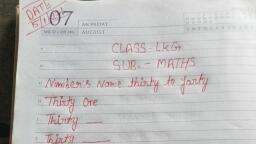 DATE
07
MONDAY
AUGUST
CLASS - LKG
SUB. - MATHS
Number's Name thirty to forty
Thirty One
Thirty __
Thirty __